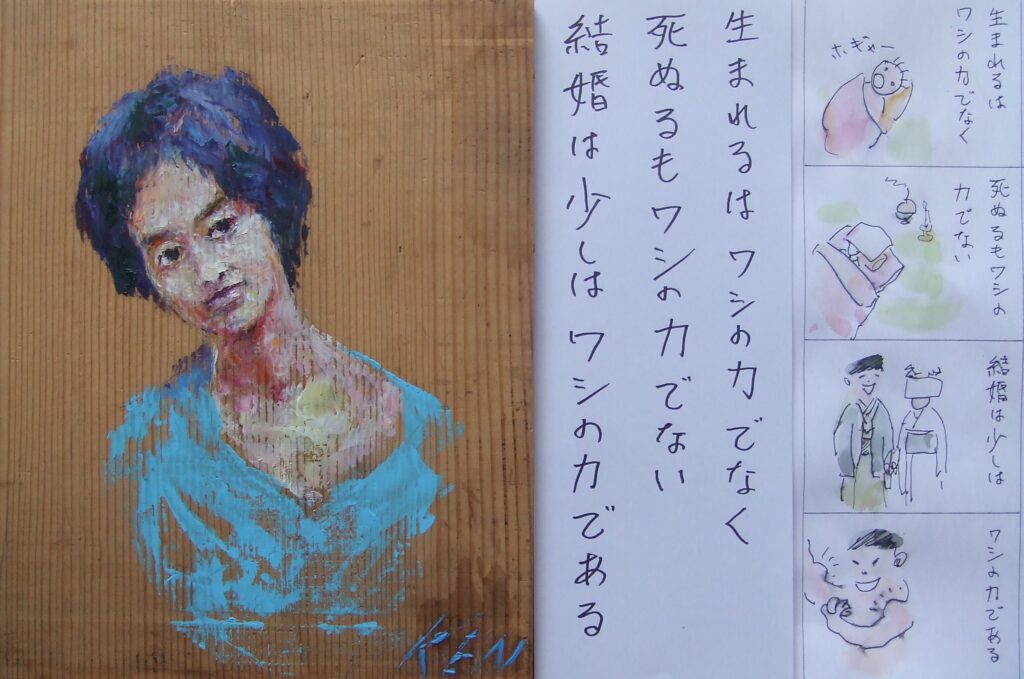 KEN
生まれるはワシの力でなく
死ぬるもワシの力でない
結婚は少しはワシの力である
生まれるは
ワシの力でなく
ホギャー
死ぬるもワシの
力でない
結婚は少しは
ワシの力である